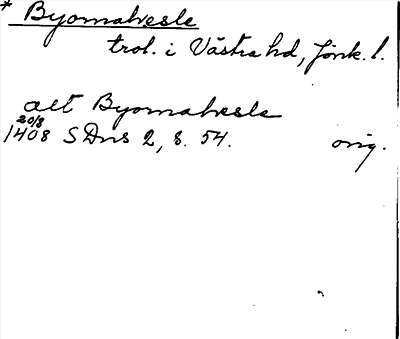 * Byomahesle
trol. i Västra hd, Jönk. l.
alt Byomahesle
20/8
1408 SDns 2, s. 54. orig.